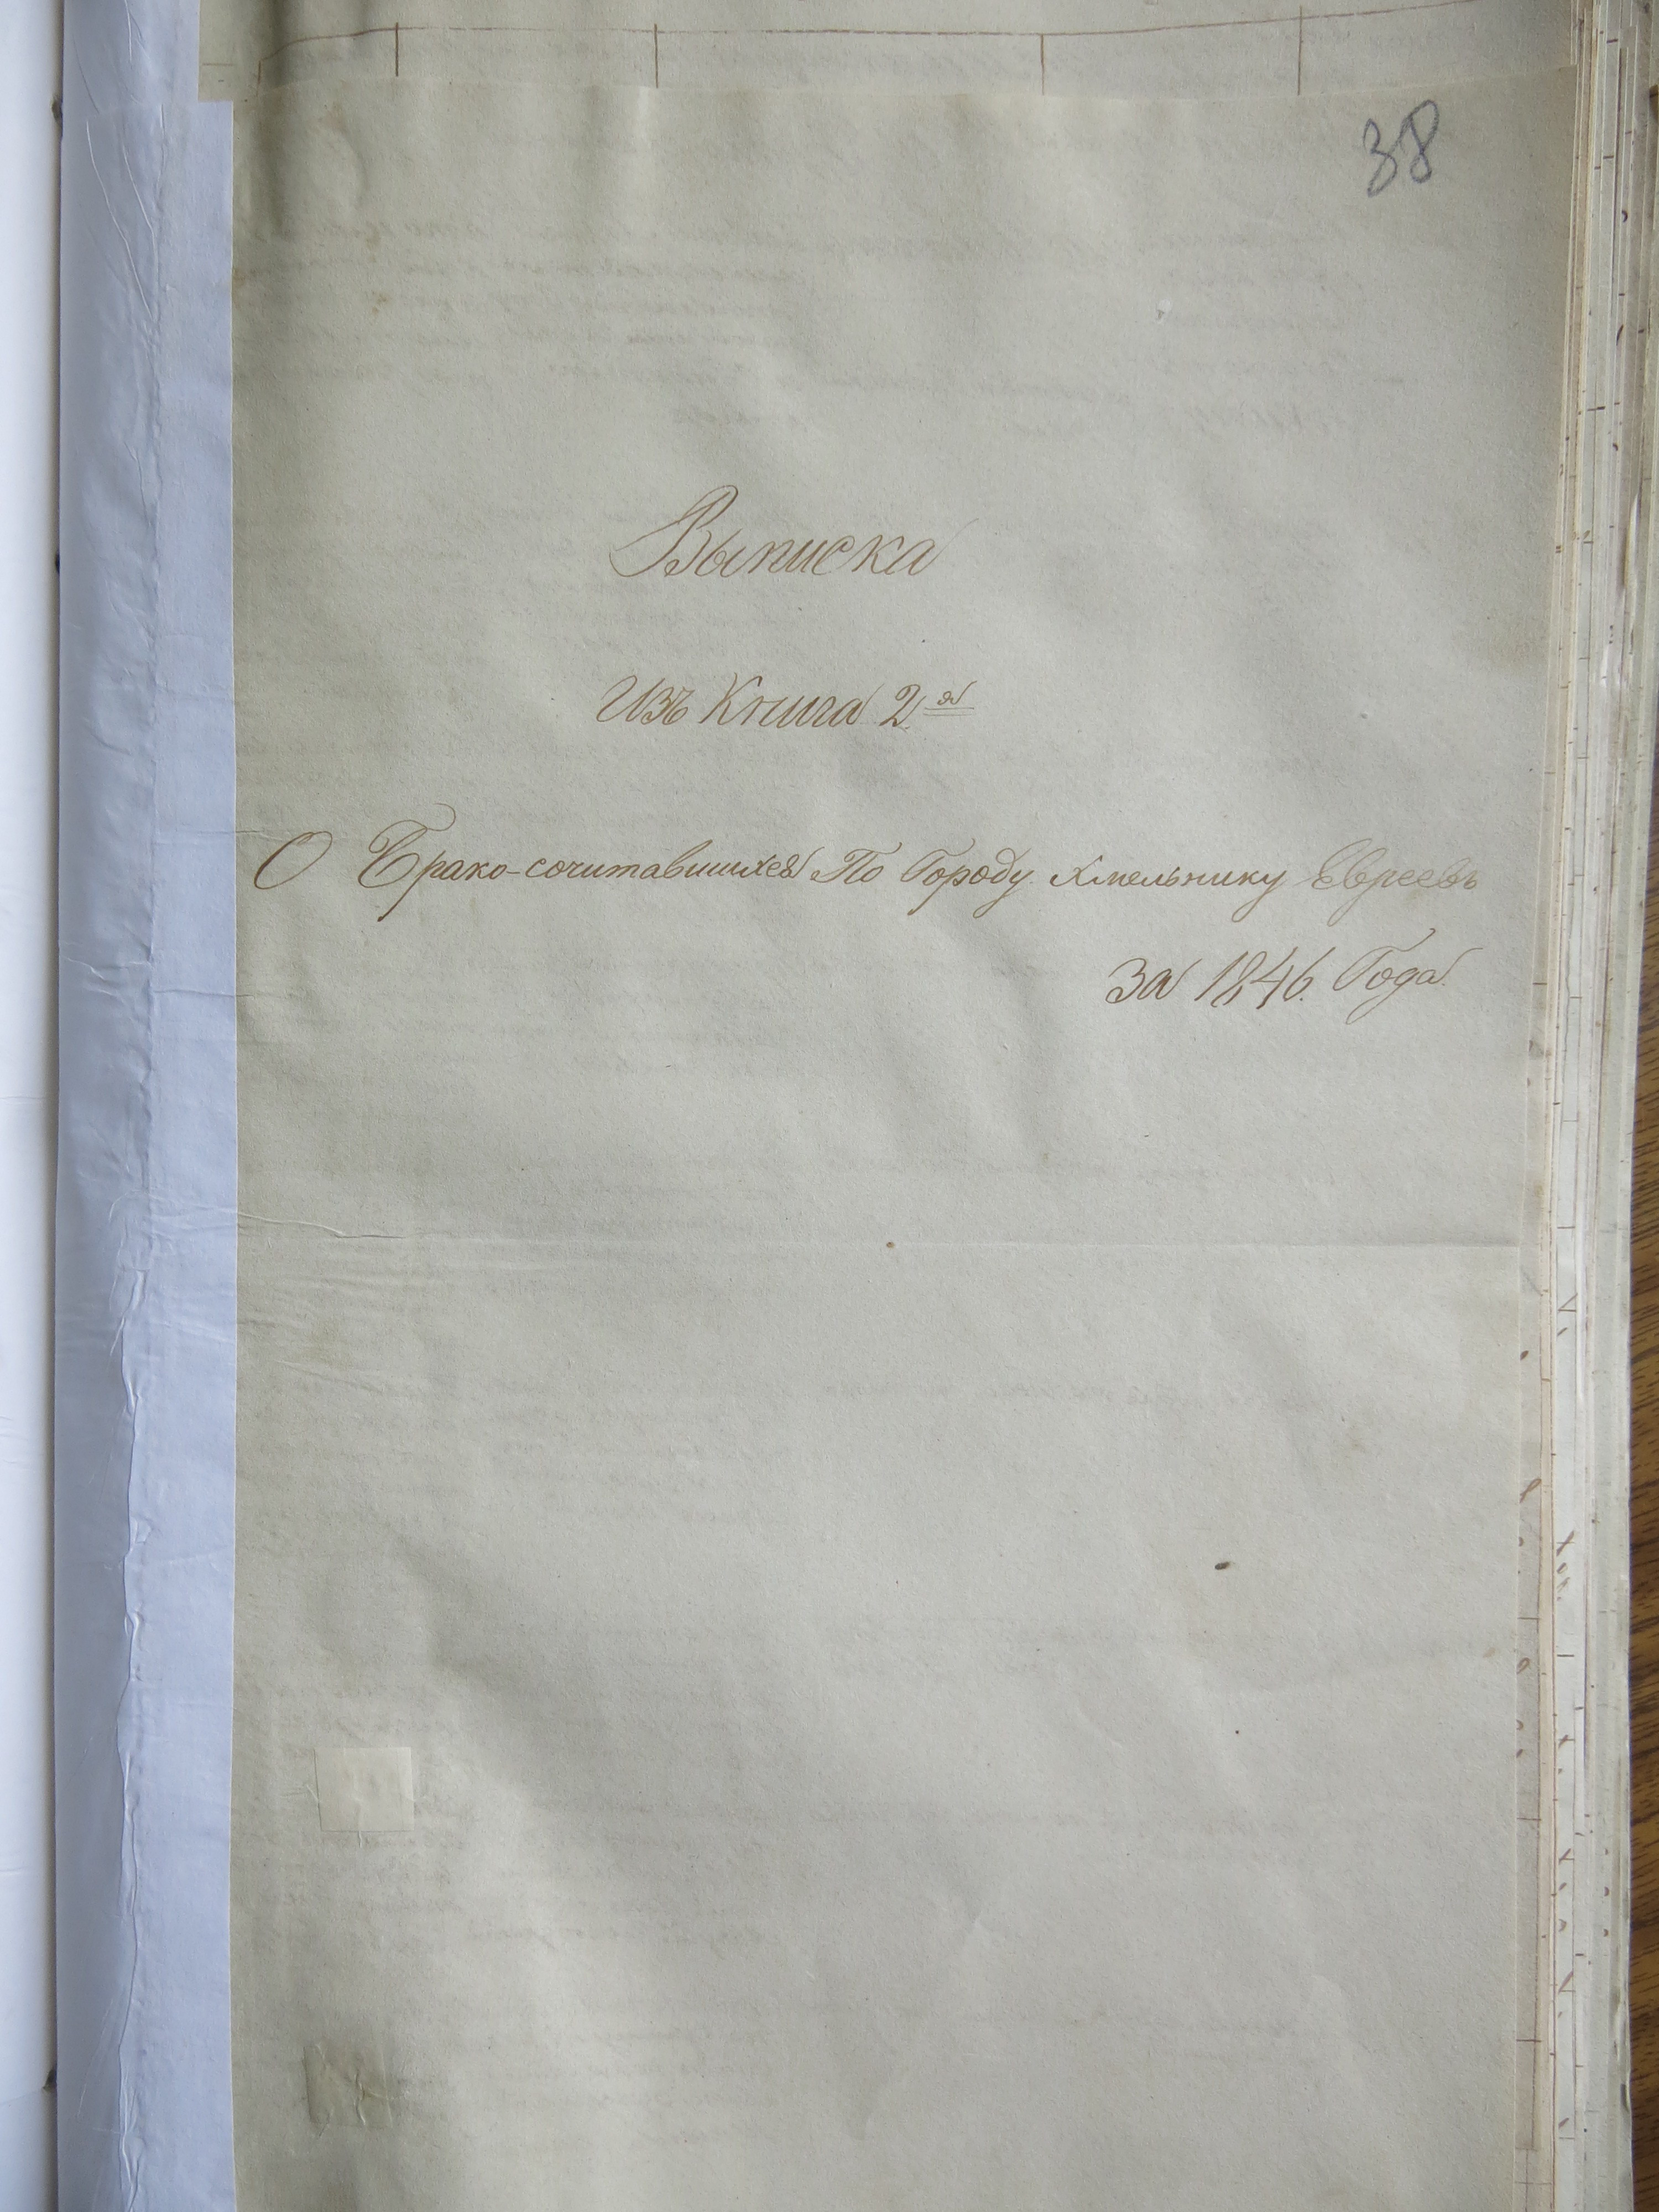 38
Выписка
Изъ Книга 2я
О Брако-сочитавшихся По Городу Хмельнику Евреевъ
За 1846. Года.